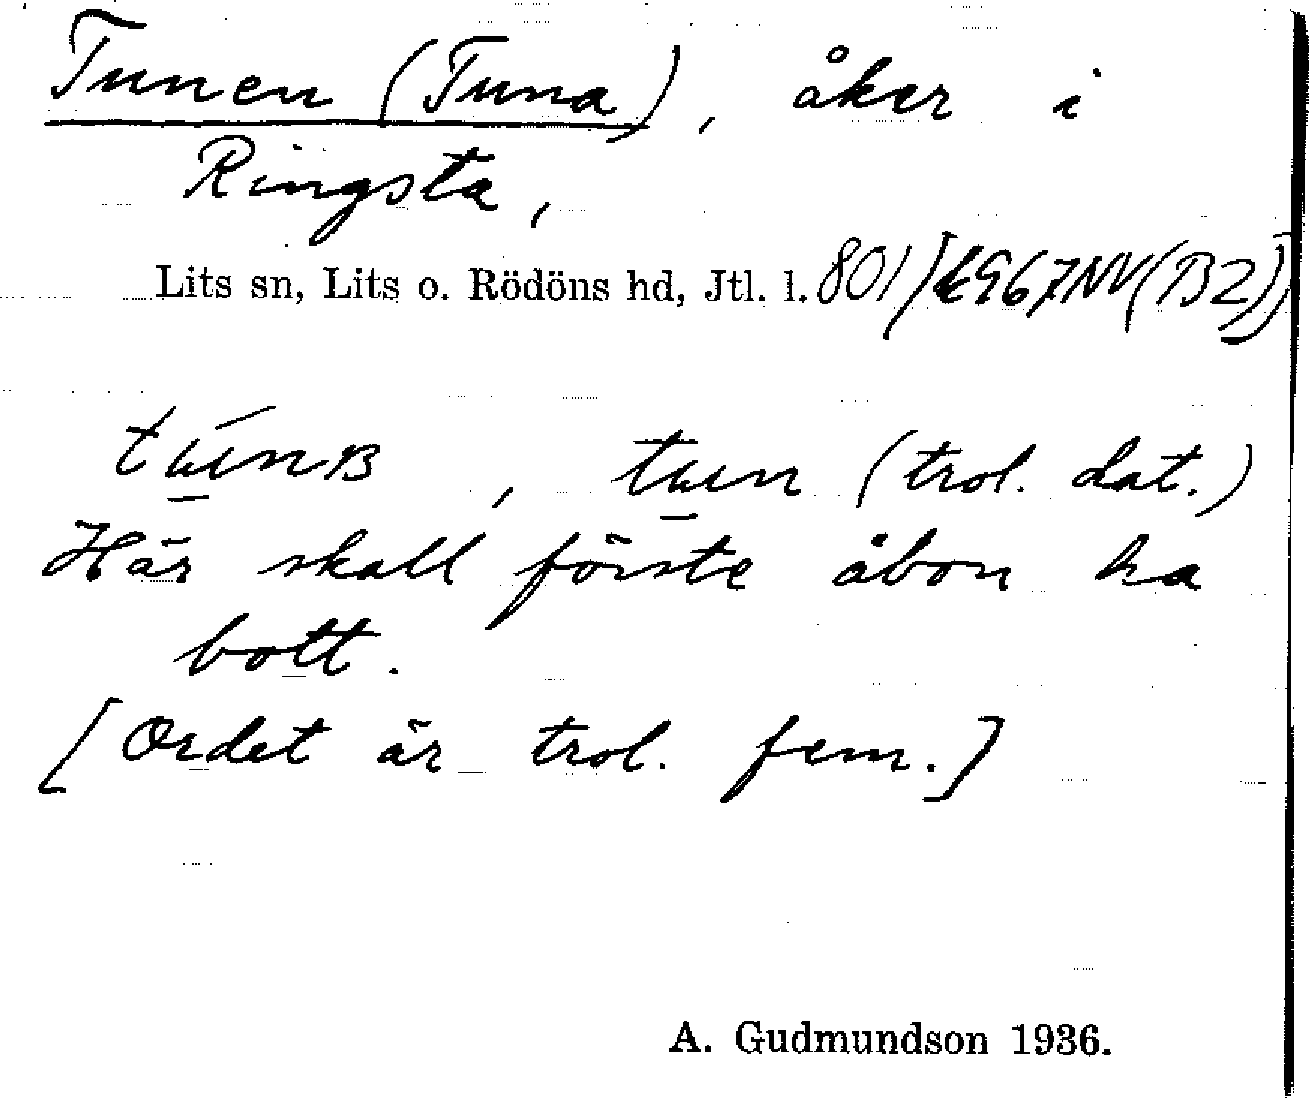 Tunen (Tuna), åker i
Ringsta,
Lits sn, Lits o. Rödöns hd, Jtl. l. 801/(4967NV(B2))
túnʙ, tun (trol. dat.)
Här skall förste åbon ha
bott.
[Ordet är trol. fem.]
A. Gudmundson 1936.